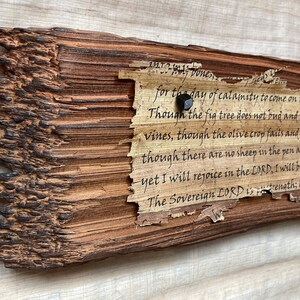 my bones,
for the day of calamity to come on
Though the fig tree does not bud and
vines, though the olive crop fails and
though there are no sheep in the pen a
yet I will rejoice in the LORD, I will
The Sovereign LORD is strength